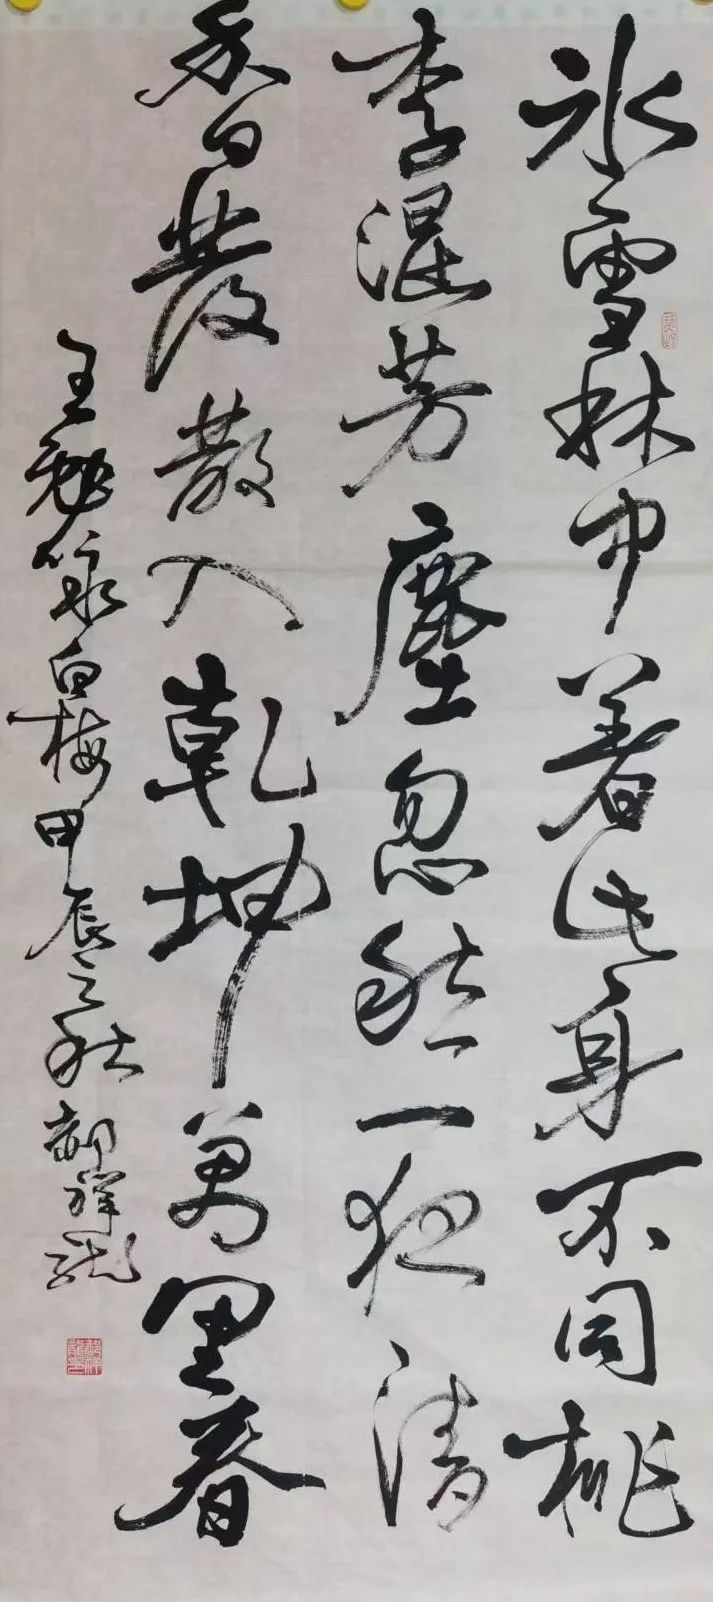 冰雪林中著此身不同桃
李混芳塵忽然一夜清
香發散入乾坤萬里春
王勉詠白梅甲辰之秋郝祥龍